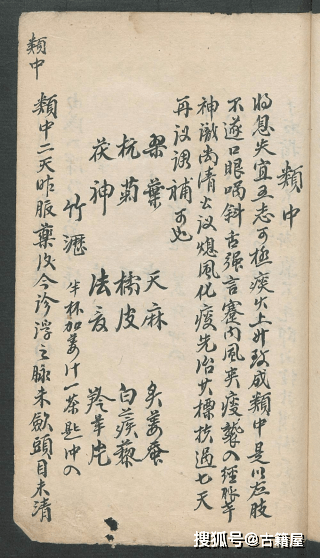 類中
将息失宜五志可極痰火上升致成類中是以左肢
不遂口眼喎斜舌强言蹇内風夾痰襲入經脉幸
神識尚清公议熄風化痰先治其標扶過七天
再议调補可也
桑葉 天麻 炙姜蚕
杭菊 橘皮 白蒺藜
茯神 法夏 羚羊片
竹瀝 半杯加姜汁一茶匙冲入
類中二天昨服藥后今診浮之脉未斂頭目未清
類中
搜狐号@古籍屋